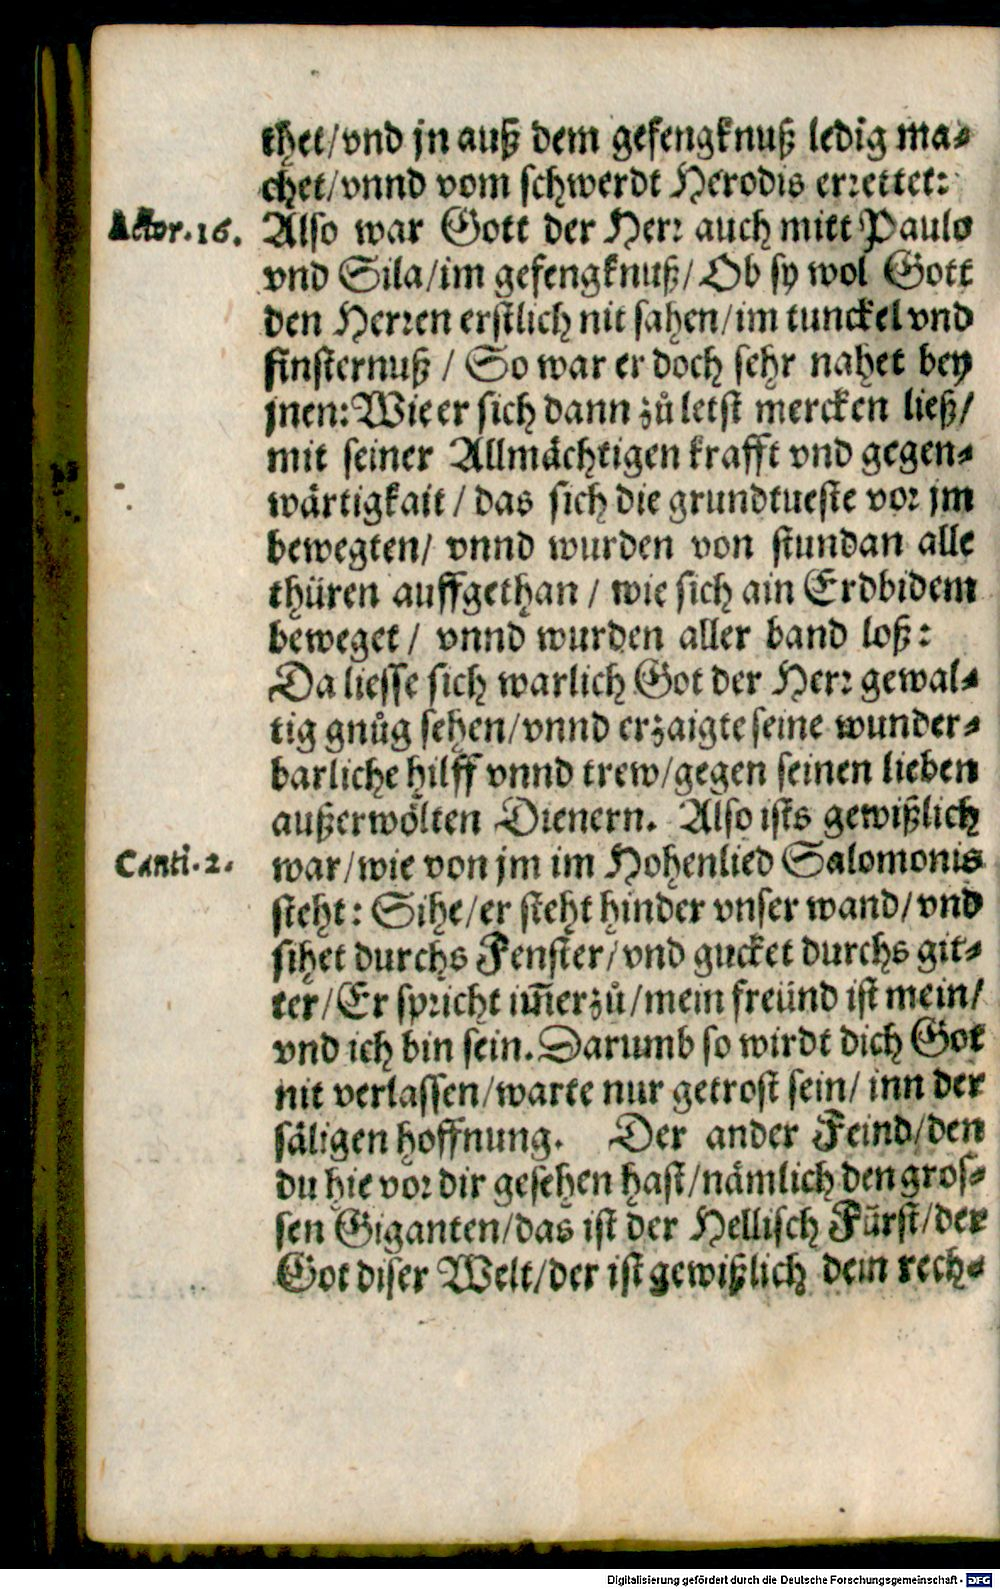 thet/vnd jn auß dem gefengknuß ledig ma-
chet/vnnd vom schwerdt Herodis errettet:
Actor.16. Also war Gott der Herr auch mitt Paulo
vnd Sila/im gefengknuß/Ob sy wol Gott
den Herren erstlich nit sahen/im tunckel vnd
finsternuß / So war er doch sehr nahet bey
jnen: Wie er sich dann zů letst mercken ließ/
mit seiner Allmächtigen krafft vnd gegen-
wärtigkait / das sich die grundtueste vor jm
bewegten/ vnnd wurden von stundan alle
thüren auffgethan / wie sich ain Erdbidem
beweget / vnnd wurden aller band loß:
Da liesse sich warlich Got der Herr gewal-
tig gnůg sehen/vnnd erzaigte seine wunder-
barliche hilff vnnd trew/gegen seinen lieben
außerwölten Dienern. Also ists gewißlich
Canti.2. war/wie von jm im Hohenlied Salomonis
steht: Sihe/er steht hinder vnser wand/vnd
sihet durchs Fenster/vnd gucket durchs git-
ter/Er spricht im̃erzů/mein freünd ist mein/
vnd ich bin sein. Darumb so wirdt dich Got
nit verlassen/warte nur getrost sein/ inn der
säligen hoffnung. Der ander Feind/den
du hie vor dir gesehen hast/nämlich den gros-
sen Giganten/das ist der Hellisch Fürst/der
Got diser Welt/der ist gewißlich dein rech-
Digitalisierung gefördert durch die Deutsche Forschungsgemeinschaft - DFG